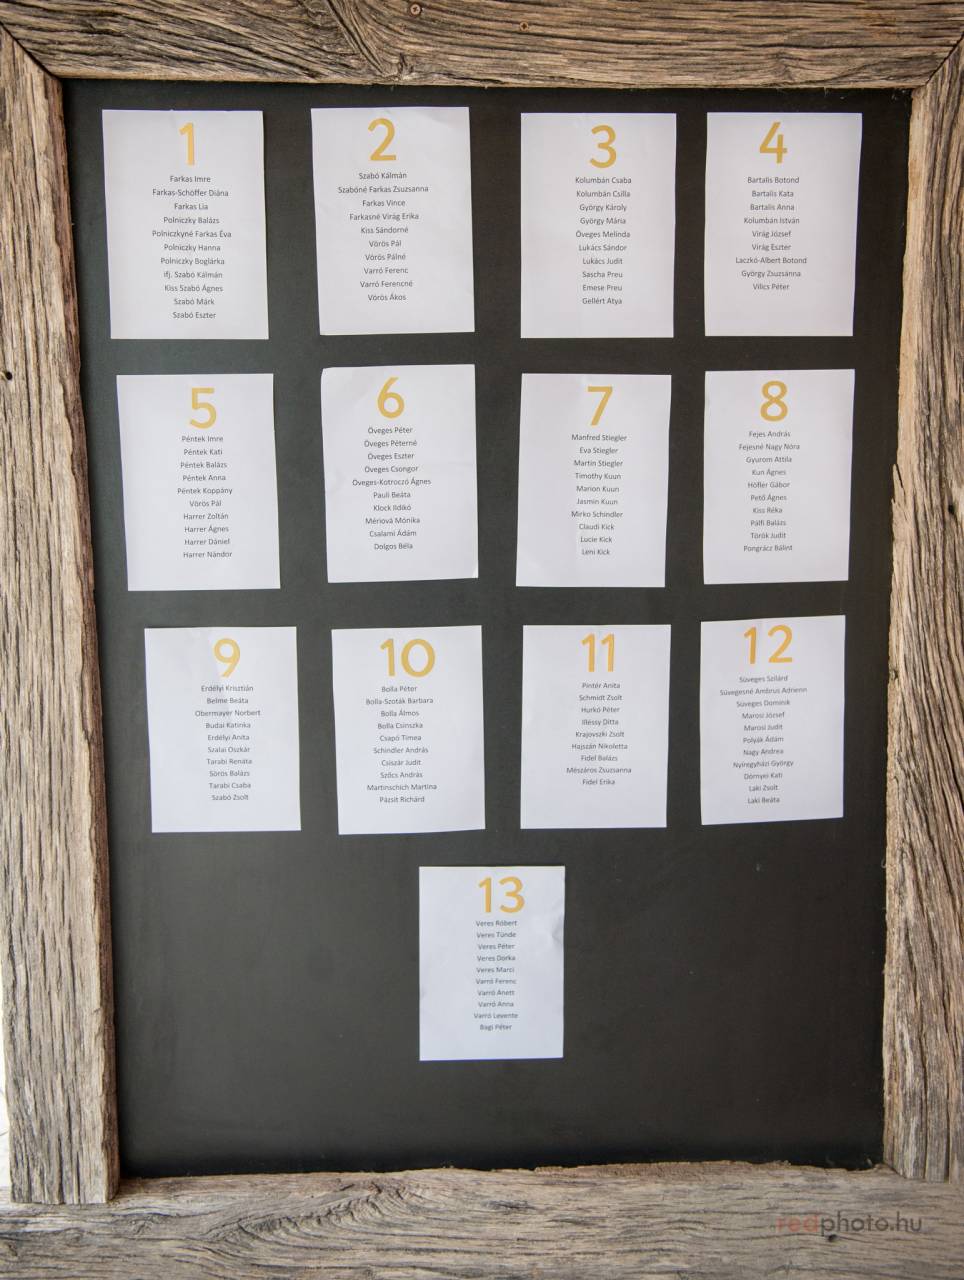 1
Farkas Imre
Farkas-Schöffer Diána
Farkas Lia
Polniczky Balázs
Polniczkyné Farkas Éva
Polniczky Hanna
Polniczky Boglárka
ifj. Szabó Kálmán
Kiss Szabó Ágnes
Szabó Márk
Szabó Eszter
2
Szabó Kálmán
Szabóné Farkas Zsuzsanna
Farkas Vince
Farkasné Virág Erika
Kiss Sándorné
Vörös Pál
Vörös Pálné
Varró Ferenc
Varró Ferencné
Vörös Ákos
3
Kolumbán Csaba
Kolumbán Csilla
György Károly
György Mária
Öveges Melinda
Lukács Sándor
Lukács Judit
Sascha Preu
Emese Preu
Gellért Atya
4
Bartalis Botond
Bartalis Kata
Bartalis Anna
Kolumbán István
Virág József
Virág Eszter
Laczkó-Albert Botond
György Zsuzsánna
Vilics Péter
5
Péntek Imre
Péntek Kati
Péntek Balázs
Péntek Anna
Péntek Koppány
Vörös Pál
Harrer Zoltán
Harrer Ágnes
Harrer Dániel
Harrer Nándor
6
Öveges Péter
Öveges Péterné
Öveges Eszter
Öveges Csongor
Öveges-Kotroczó Ágnes
Pauli Beáta
Klock Ildikó
Mériová Mónika
Csalami Ádám
Dolgos Béla
7
Manfred Stiegler
Eva Stiegler
Martin Stiegler
Timothy Kuun
Marion Kuun
Jasmin Kuun
Mirko Schindler
Claudi Kick
Lucie Kick
Leni Kick
8
Fejes András
Fejesné Nagy Nóra
Gyurom Attila
Kun Ágnes
Höfler Gábor
Pető Ágnes
Kiss Réka
Pálfi Balázs
Török Judit
Pongrácz Bálint
9
Erdélyi Krisztián
Belme Beáta
Obermayer Norbert
Budai Katinka
Erdélyi Anita
Szalai Oszkár
Tarabi Renáta
Sörös Balázs
Tarabi Csaba
Szabó Zsolt
10
Bolla Péter
Bolla-Szoták Barbara
Bolla Álmos
Bolla Csinszka
Csapó Tímea
Schindler András
Csiszár Judit
Szőcs András
Martinschich Martina
Pázsit Richárd
11
Pintér Anita
Schmidt Zsolt
Hurkó Péter
Illéssy Ditta
Krajovszki Zsolt
Hajszán Nikoletta
Fidel Balázs
Mészáros Zsuzsanna
Fidel Erika
12
Süveges Szilárd
Süvegesné Ambrus Adrienn
Süveges Dominik
Marosi József
Marosi Judit
Polyák Ádám
Nagy Andrea
Nyíregyházi György
Dörnyei Kati
Laki Zsolt
Laki Beáta
13
Veres Róbert
Veres Tünde
Veres Péter
Veres Dorka
Veres Marci
Varró Ferenc
Varró Anett
Varró Anna
Varró Levente
Bagi Péter
redphoto.hu